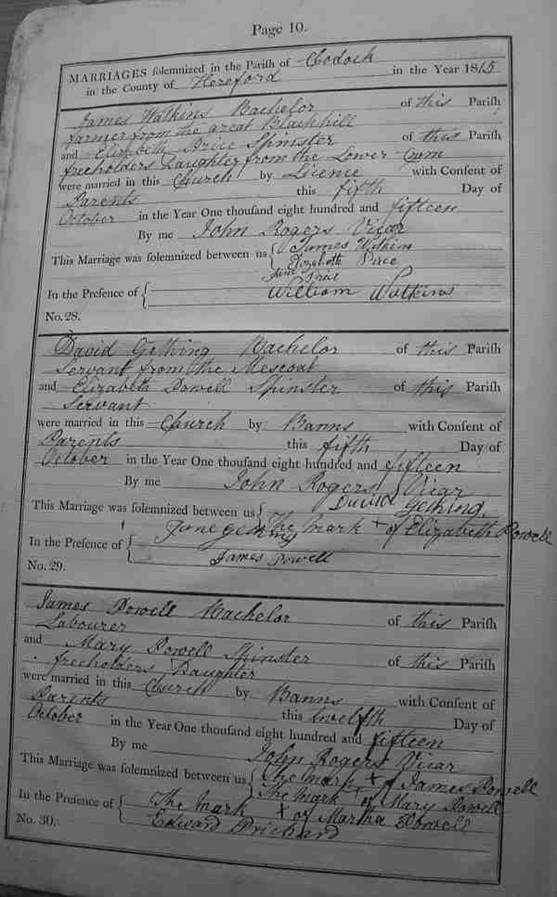 Page 10.
MARRIAGES solemnized in the Parish of Clodock
in the County of Hereford in the Year 1815
James Watkins Bachelor of this Parish
farmer from the great Blackhill
and Elizabeth Price Spinster of this Parish
freeholders Daughter from the Lower Cwm
were married in this Church by Licence with Consent of
Parents this fifth Day of
October in the Year One thousand eight hundred and fifteen
By me John Rogers Vicar
This Marriage was solemnized between us { James Watkins
Elizabeth Price
In the Presence of { Jane Price
William Watkins
No. 28.
David Gething Bachelor of this Parish
Servant from the Mescoat
and Elizabeth Powell Spinster of this Parish
Servant
were married in this Church by Banns with Consent of
Parents this fifth Day of
October in the Year One thousand eight hundred and fifteen
By me John Rogers Vicar
This Marriage was solemnized between us { David Gething
The mark + of Elizabeth Powell
In the Presence of { Jane
James Powell
No. 29.
James Powell Bachelor of this Parish
Labourer
and Mary Powell Spinster of this Parish
freeholders Daughter
were married in this Church by Banns with Consent of
Parents this twelfth Day of
October in the Year One thousand eight hundred and fifteen
By me John Rogers Vicar
This Marriage was solemnized between us { The mark + of James Powell
The Mark + of Mary Powell
In the Presence of { The Mark + of Martha Powell
Edward Prichard
No. 30.